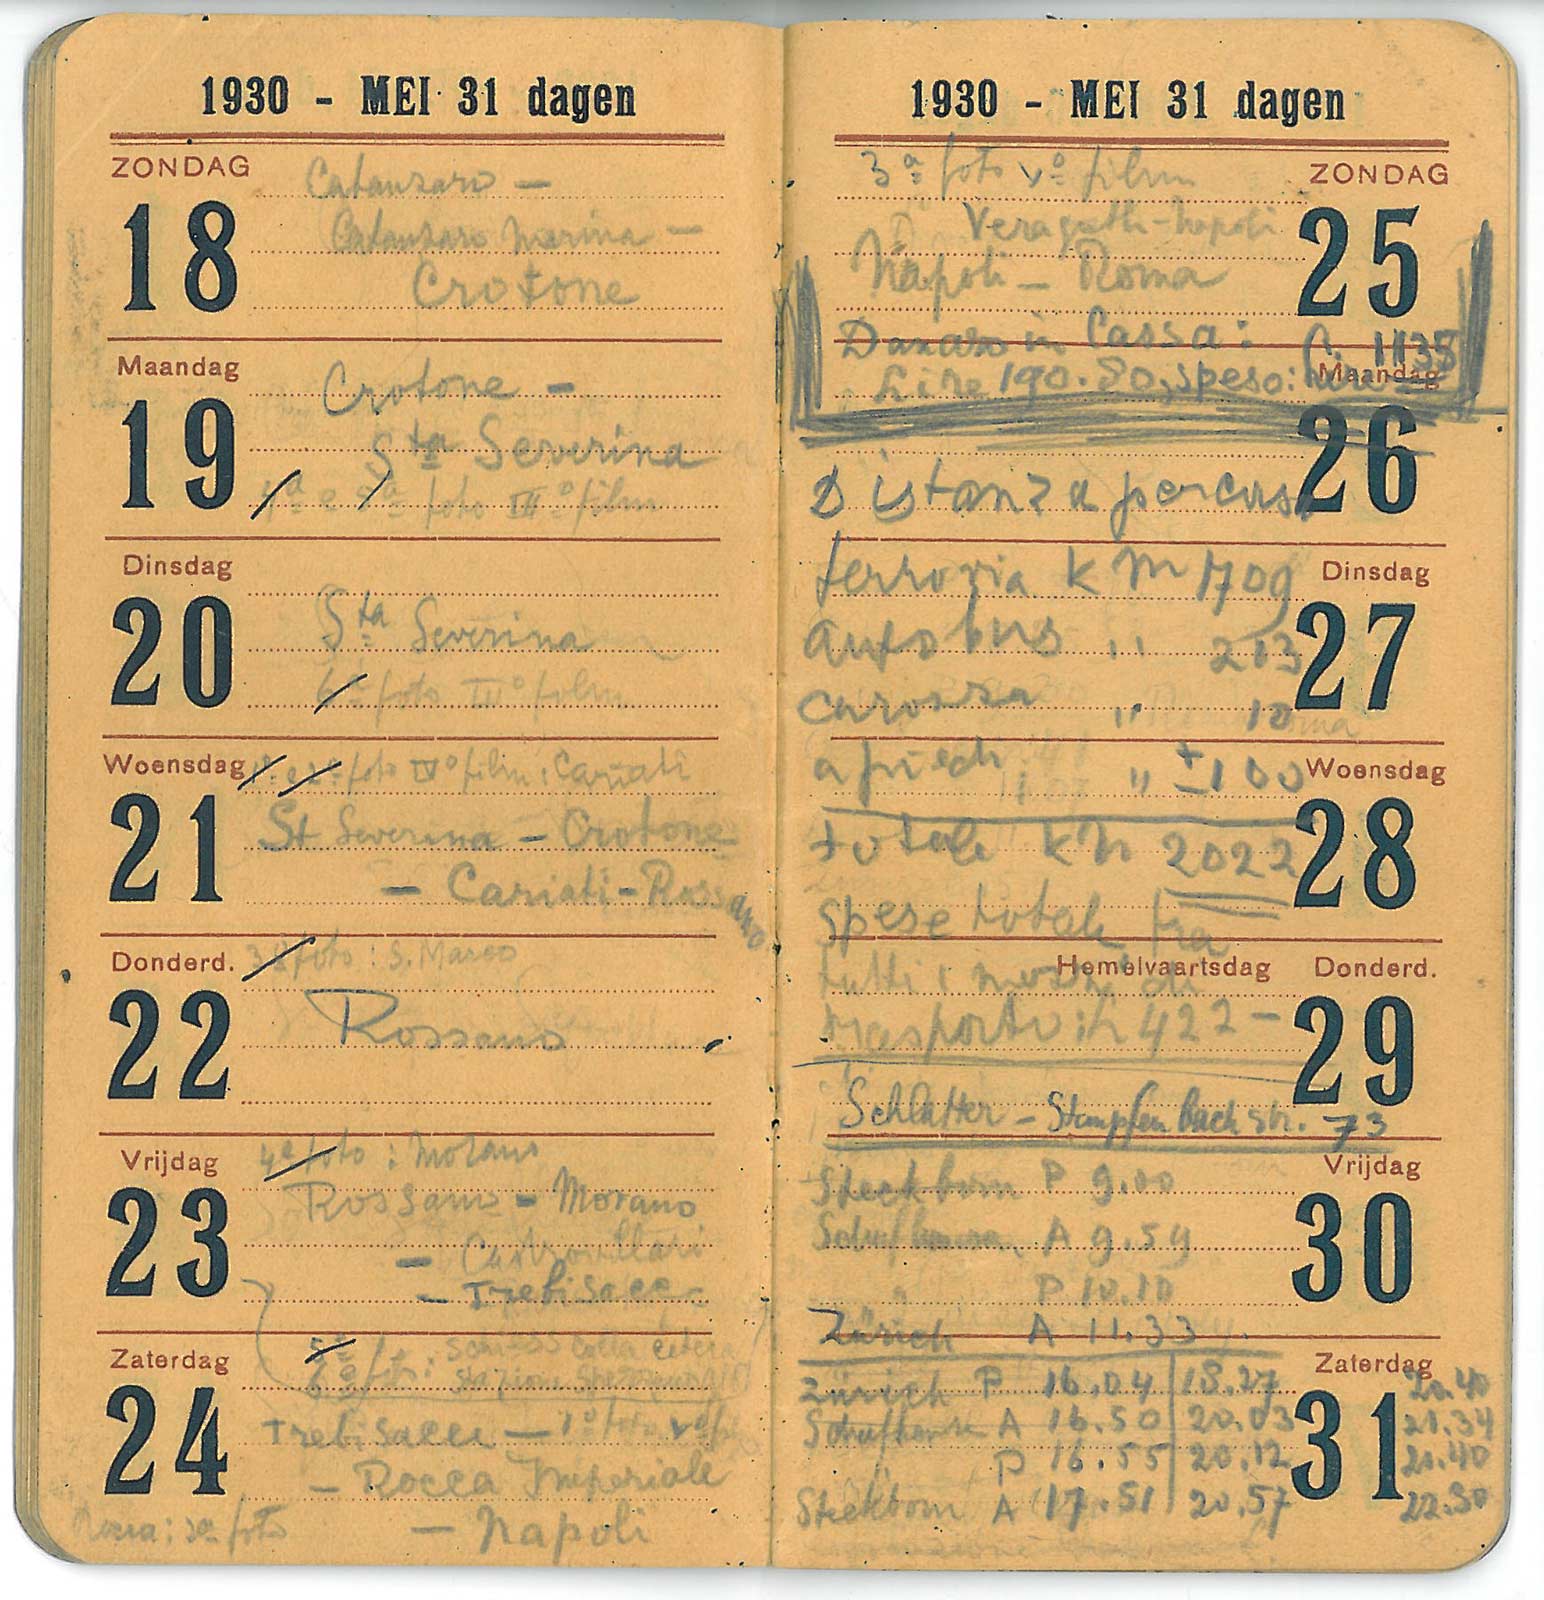 1930 - MEI 31 dagen
ZONDAG
18
Catanzaro —
Catanzaro Marina —
Crotone
Maandag
19
Crotone —
Sta Severina
4a e 5a foto III° film
Dinsdag
20
Sta Severina
6a foto III° film
Woensdag
21
1a e 2a foto IV° film: Cariati
St Severina — Crotone
— Cariati - Rossano
Donderd.
22
3a foto: S. Marco
Rossano
Vrijdag
23
4a foto: Morano
Rossano — Morano
— Castrovillari
— Trebisacce
Zaterdag
24
5a
6a foto: stazione
Trebisacce — 1a foto V° f
— Rocca Imperiale
— Napoli
Rocca: 2a foto
1930 - MEI 31 dagen
ZONDAG
25
3a foto V° film
Veragutt - Napoli
Napoli — Roma
Danaro in Cassa: L. 1135
Lire 190.80, speso:
Maandag
26
Distanza percorsa
Dinsdag
27
ferrovia KM 1709
autobus " 213
carozza " 10
Woensdag
28
a piedi " ± 100
totale KM 2022
spese totale tra
Hemelvaartsdag Donderd.
29
tutti i mezzi di
trasporto: L 422 —
Schlatter — Stampfenbachstr. 73
Vrijdag
30
Steckborn P 9.00
Schafhausen A 9.59
" P 10.10
Zürich A 11.33
Zaterdag
31
Zürich P 16.04 18.27 20.40
Schafhausen A 16.50 20.03 21.34
P 16.55 20.12 21.40
Steckborn A 17.51 20.57 22.30